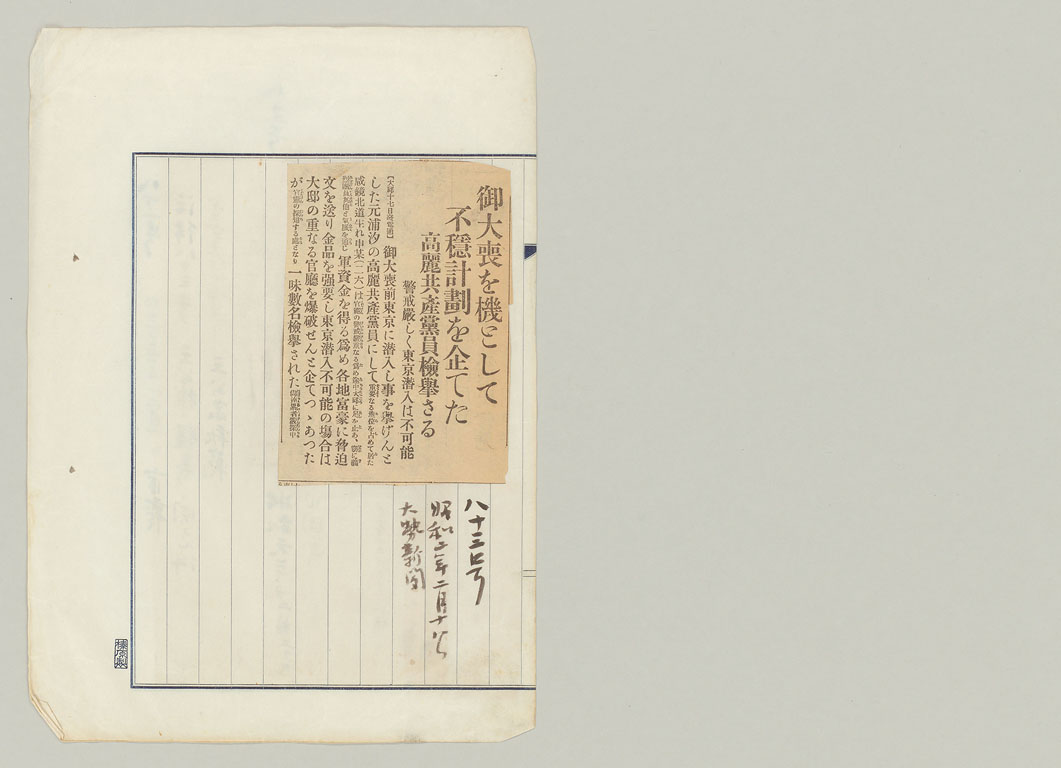 御大喪を機として
不穩計劃を企てた
高麗共產黨員檢擧さる
警戒嚴しく東京潜入は不可能
【大邱十七日發電通】御大喪前東京に潜入し事を擧げんと
した元浦汐の高麗共產黨員にして重要なる地位を占めて居た
咸鏡北道生れ申某(二六)は
軍資金を得る爲め各地富豪に脅迫
文を送り金品を强要し東京潜入不可能の場合は
大邸の重なる官廳を爆破せんと企てつゝあつた
が官憲の探知する處となり一味數名檢擧された
八十三号
昭和二年二月十八
大勢新聞